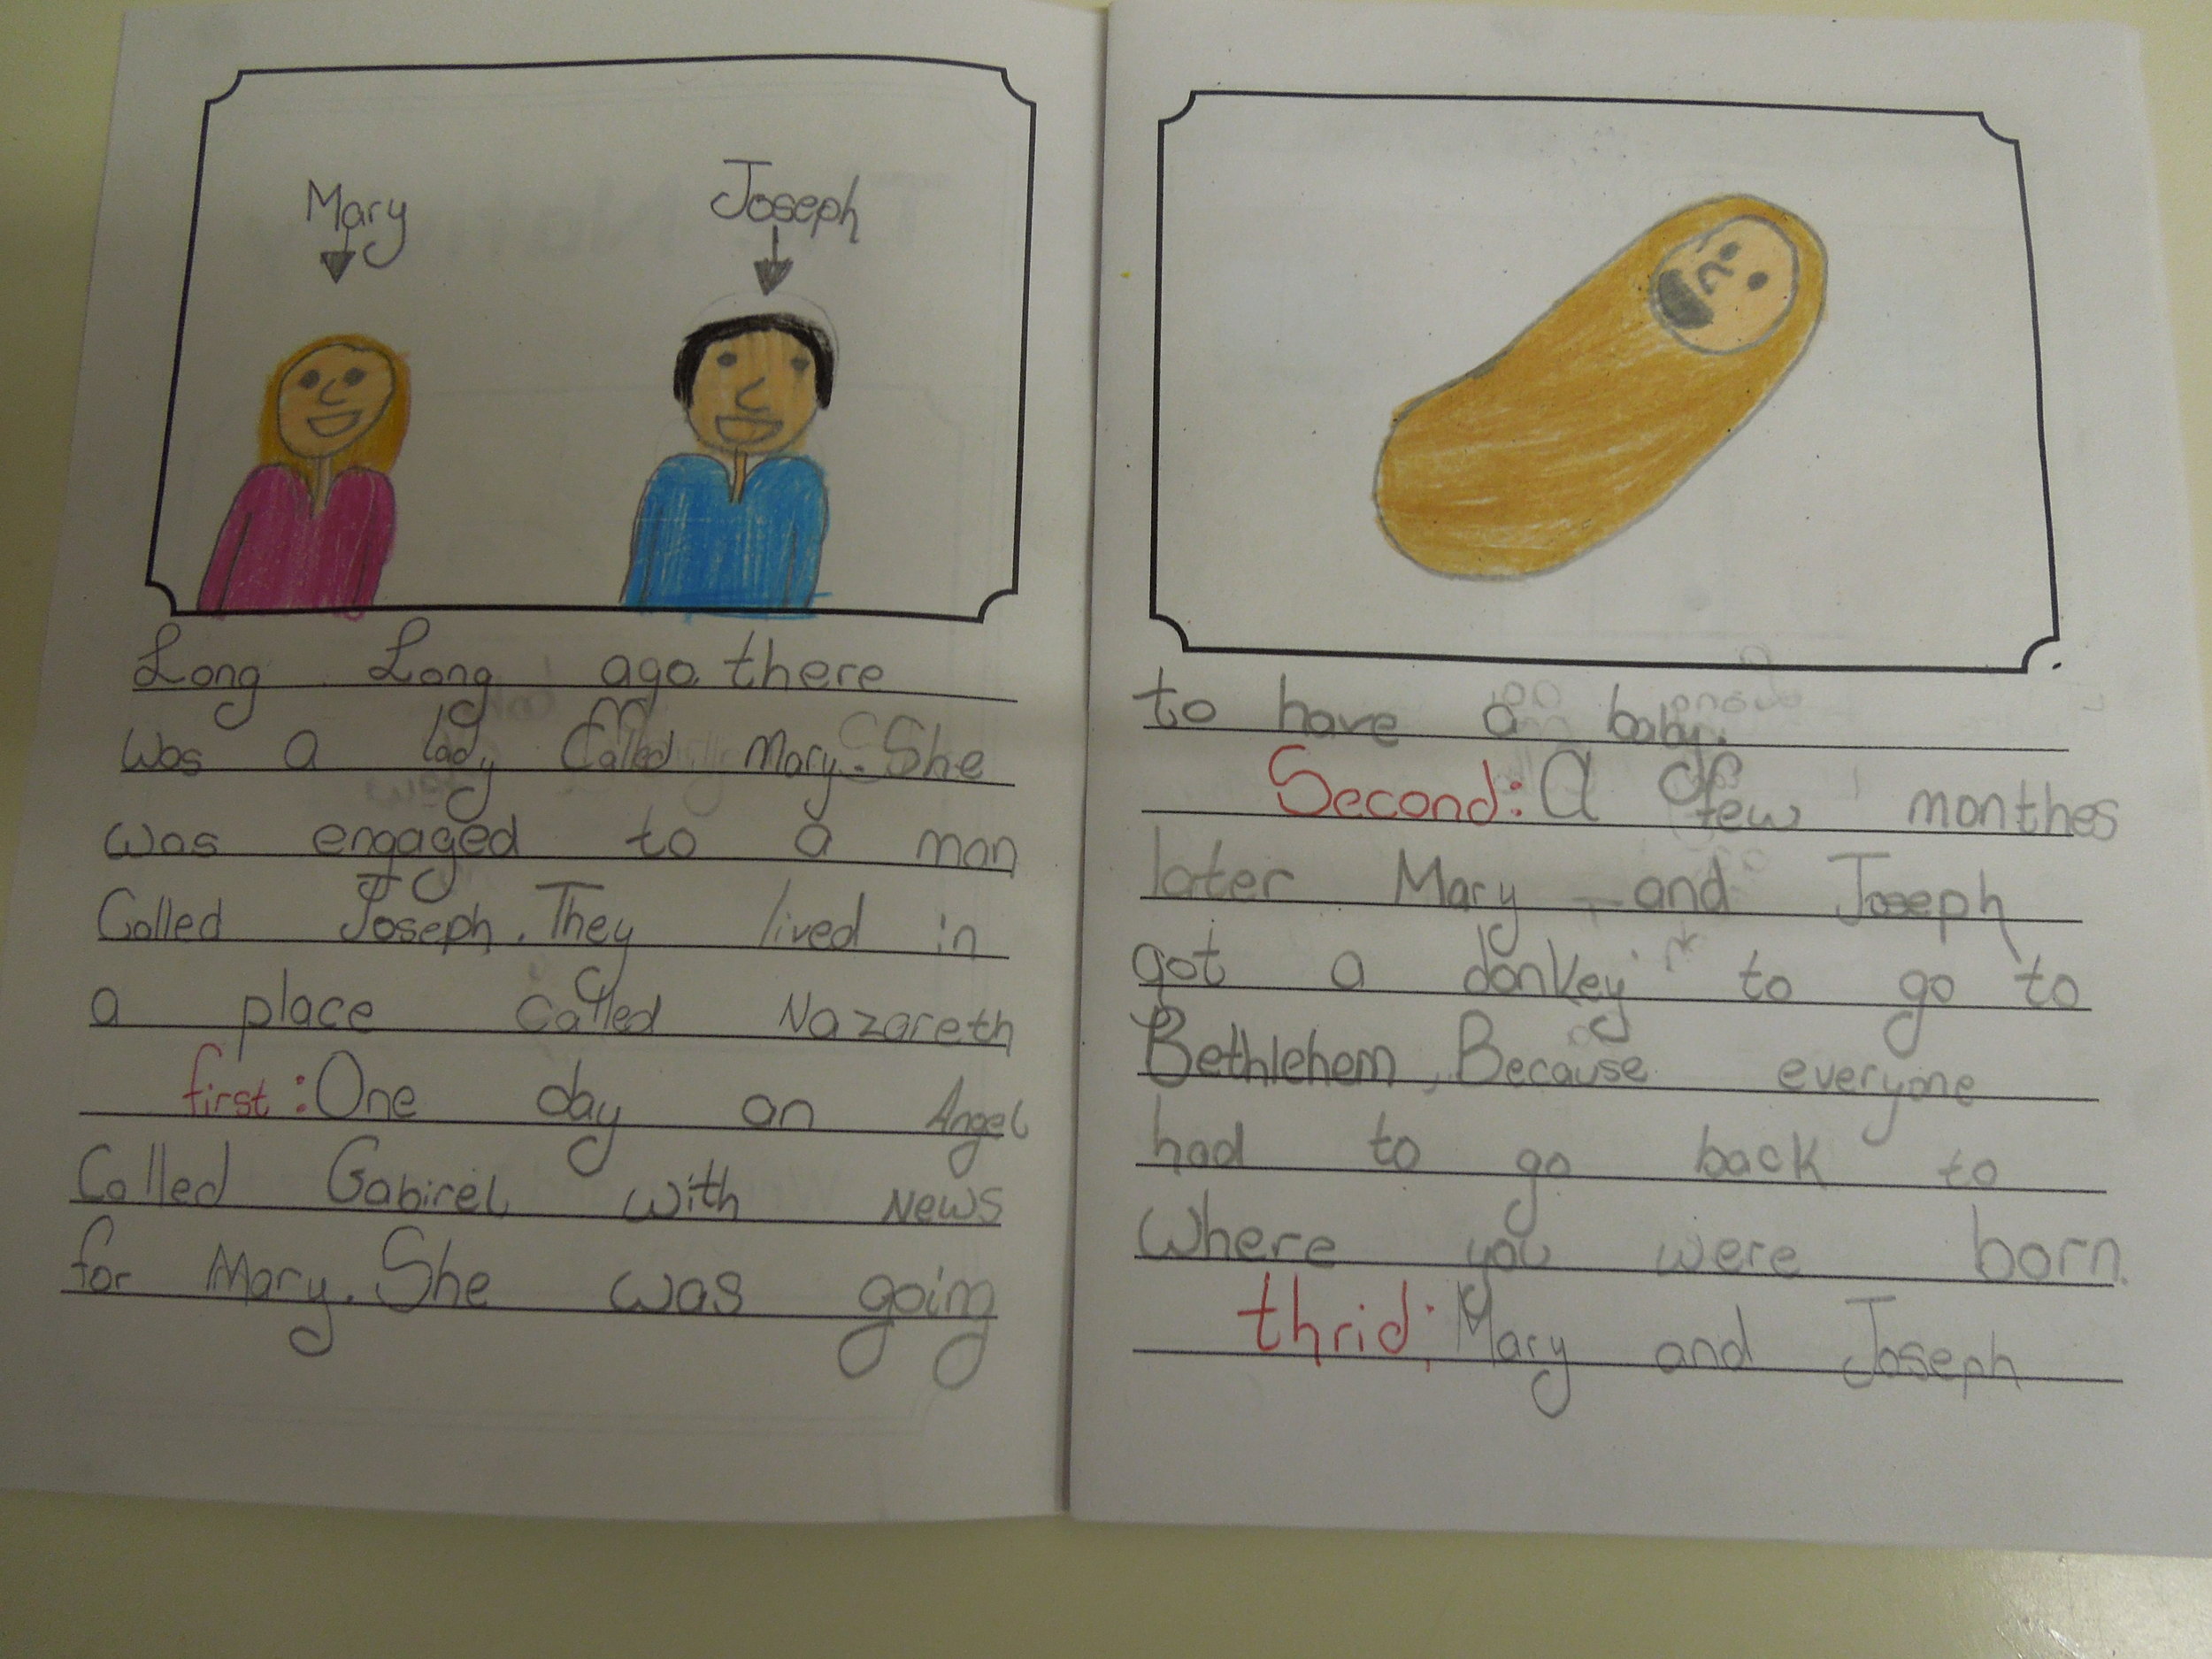 Mary
Joseph
Long Long ago there
was a lady Called Mary. She
was engaged to a man
Called Joseph. They lived in
a place called Nazareth
first: One day an Angel
Called Gabirel with News
for Mary. She was going
to have a baby.
Second: A few monthes
later Mary and Joseph
got a donkey to go to
Bethlehem, Because everyone
had to go back to
where you were born.
thrid: Mary and Joseph